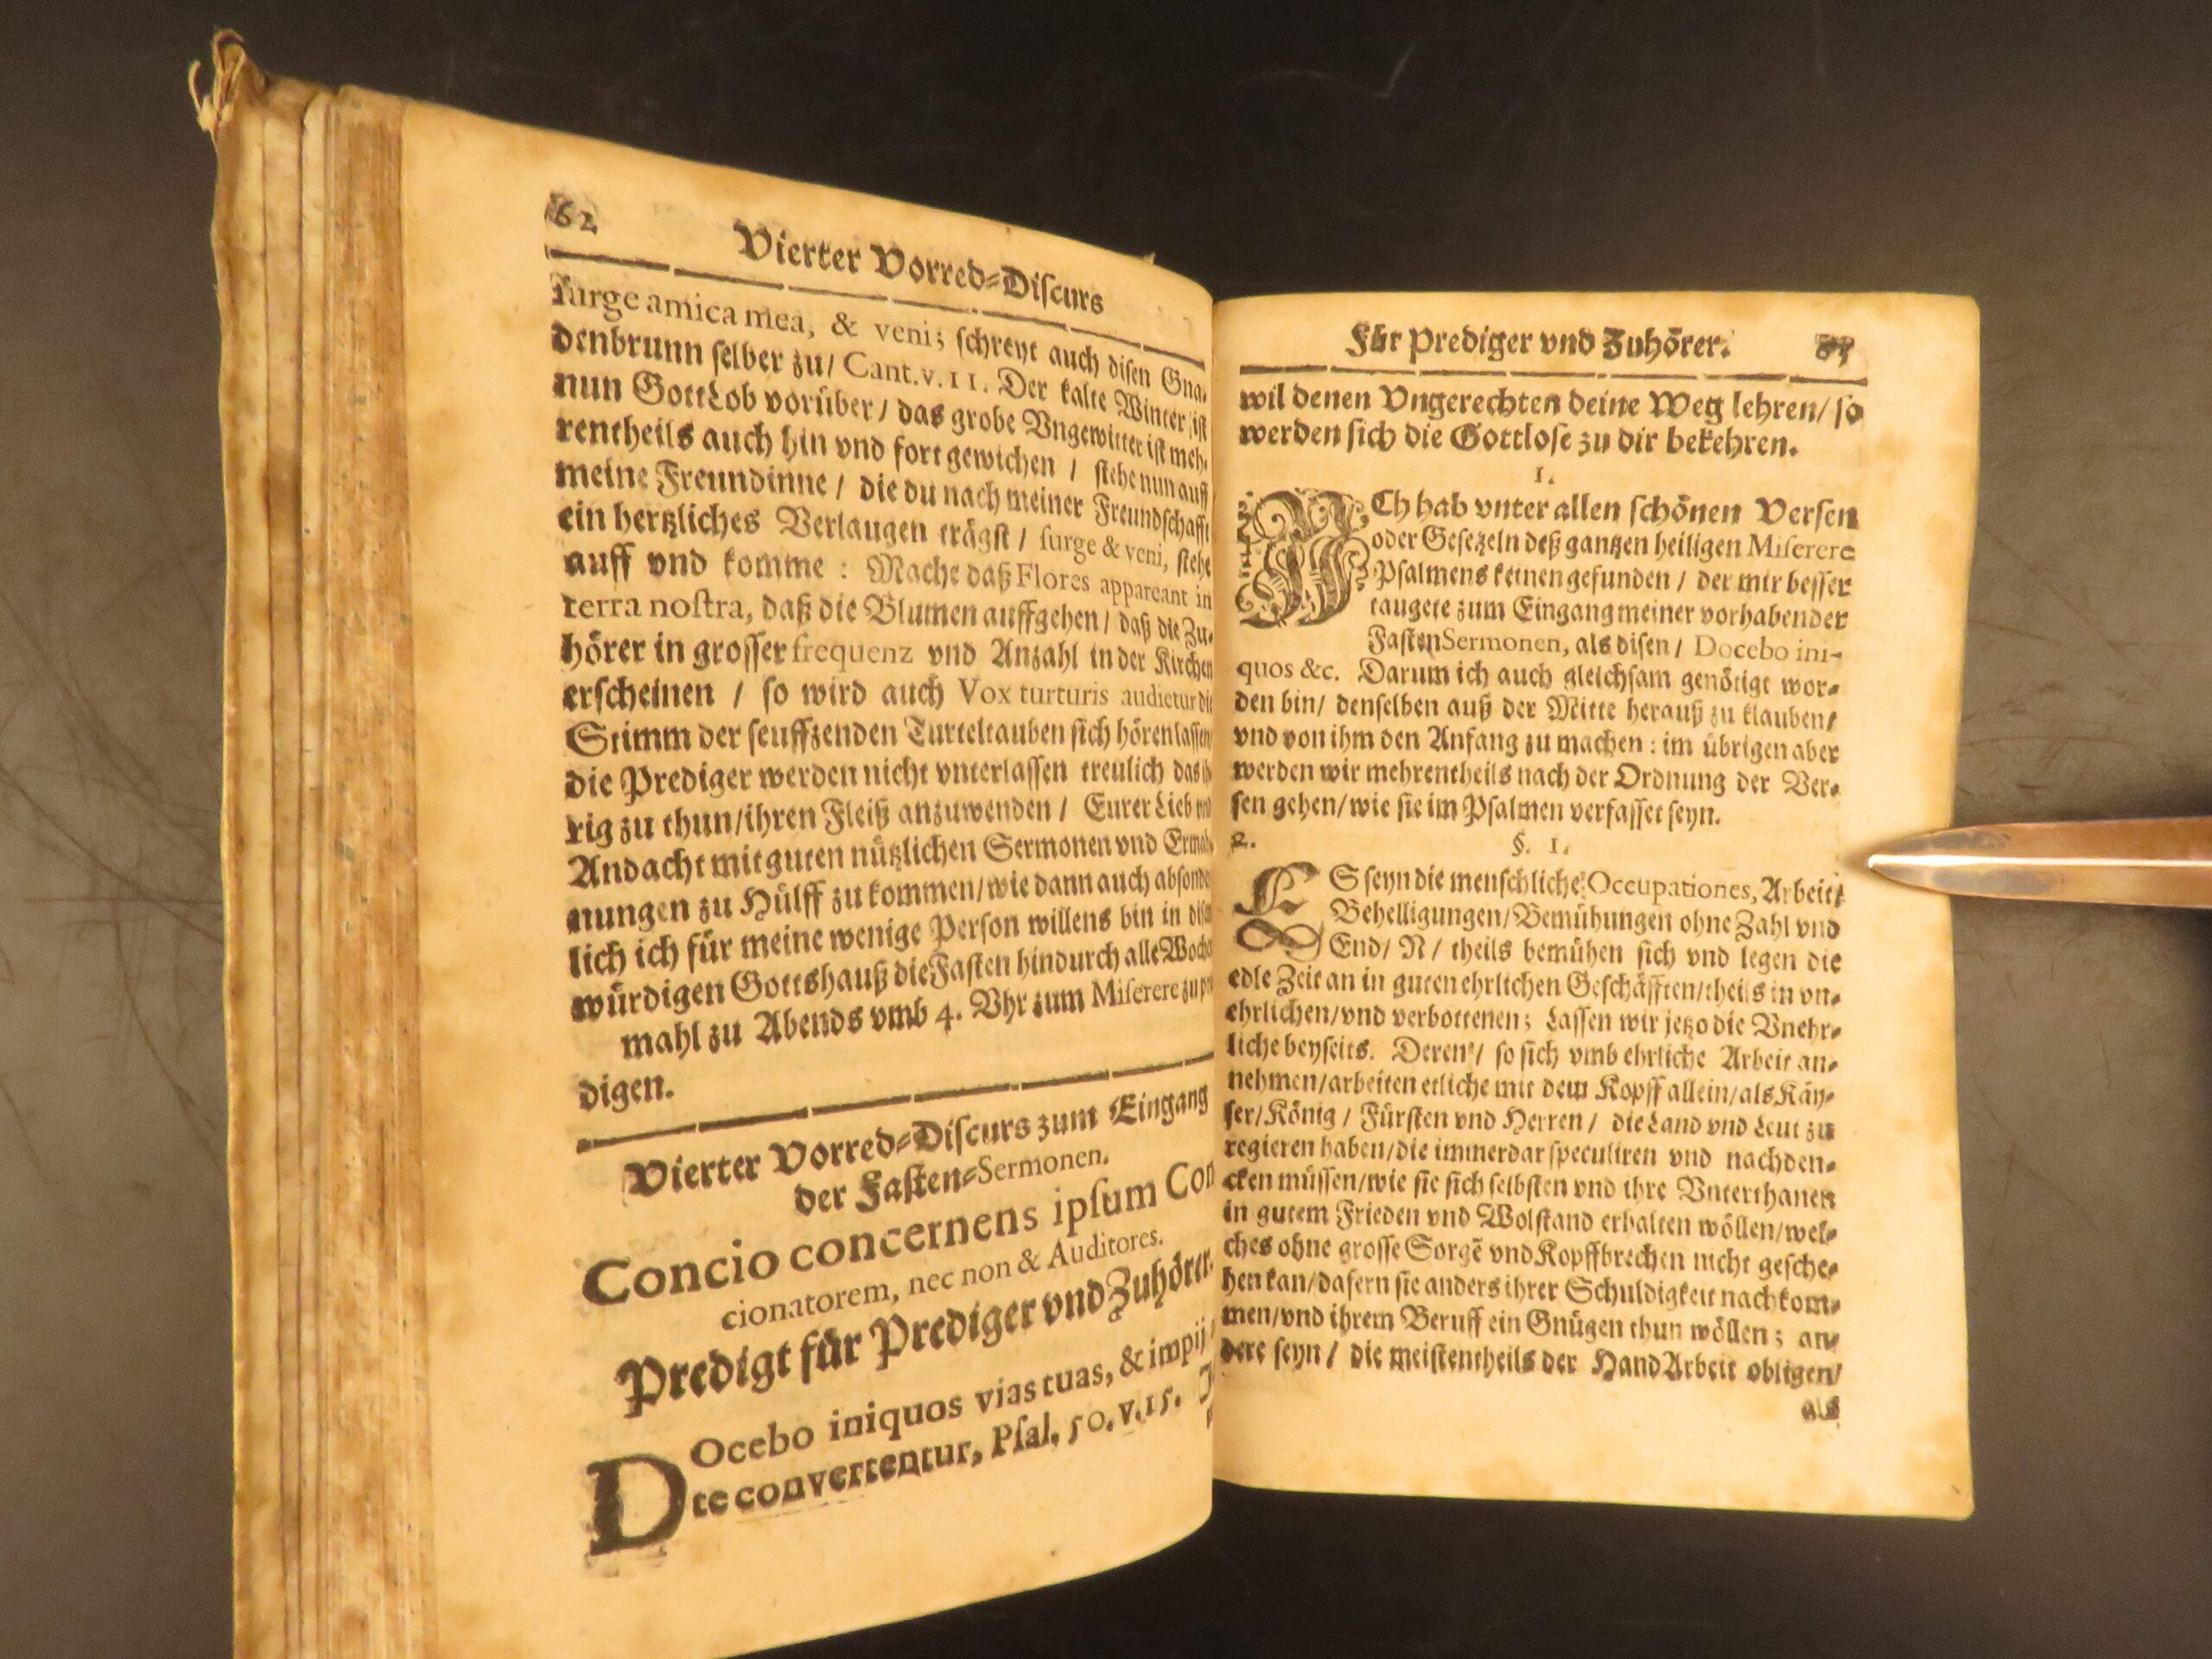 62
Vierter Vorred-Discurs
surge amica mea, & veni; schreyt auch disen Gna-
denbrunn selber zu/ Cant. v. 11. Der kalte Winter ist
nun GottLob vorüber/ das grobe Vngewitter ist meh-
rentheils auch hin vnd fort gewichen / stehe nun auff
meine Freundinne / die du nach meiner Freundschafft
ein hertzliches Verlaugen trägst / surge & veni, stehe
auff vnd komme : Mache daß Flores appareant in
terra nostra, daß die Blumen auffgehen / daß die Zu-
hörer in grosser frequenz vnd Anzahl in der Kirchen
erscheinen / so wird auch Vox turturis audietur die
Stimm der seufftzenden Turteltauben sich hören lassen
die Prediger werden nicht vnterlassen treulich das
rig zu thun/ihren Fleiß anzuwenden / Eurer Lieb vnd
Andacht mit guten nützlichen Sermonen vnd Ermah
nungen zu Hülff zu kommen/ wie dann auch absonde
lich ich für meine wenige Person willens bin in
würdigen Gottshauß die Fasten hindurch alle
mahl zu Abends vmb 4. Vhr zum Miserere zu
digen.
Vierter Vorred-Discurs zum Eingang
der Fasten-Sermonen.
Concio concernens ipsum Con
cionatorem, nec non & Auditores.
Predigt für Prediger vnd Zuhörer
DOcebo iniquos vias tuas, & impij
te convertentur, Psal. 50. v. 15.
Für Prediger vnd Zuhörer.
wil denen Vngerechten deine Weg lehren/ so
werden sich die Gottlose zu dir bekehren.
1.
ICh hab vnter allen schönen Versen
oder Gesetzeln deß gantzen heiligen Miserere
Psalmens keinen gefunden / der mir besser
taugete zum Eingang meiner vorhabender
Fasten Sermonen, als disen / Docebo ini-
quos &c. Darum ich auch gleichsam genötigt wor-
den bin/ denselben auß der Mitte herauß zu klauben/
vnd von ihm den Anfang zu machen : im übrigen aber
werden wir mehrentheils nach der Ordnung der Ver-
sen gehen/ wie sie im Psalmen verfasset seyn.
2. §. 1.
ES seyn die menschliche Occupationes, Arbeit/
Behelligungen/ Bemühungen ohne Zahl vnd
End/ N/ theils bemühen sich vnd legen die
edle Zeit an in guten ehrlichen Geschäfften/theils in vn-
ehrlichen/vnd verbottenen; Lassen wir jetzo die Vnehr-
liche beyseits. Deren/ so sich vmb ehrliche Arbeit an-
nehmen/arbeiten etliche mit dem Kopff allein/als Käy-
ser/König / Fürsten vnd Herren / die Land vnd Leut zu
regieren haben/die immerdar speculiren vnd nachden-
cken müssen/wie sie sich selbsten vnd ihre Vnterthanen
in gutem Frieden vnd Wolstand erhalten wöllen/wel-
ches ohne grosse Sorgẽ vnd Kopffbrechen nicht gesche-
hen kan/dafern sie anders ihrer Schuldigkeit nachkom-
men/vnd ihrem Beruff ein Gnügen thun wöllen; an-
dere seyn / die meistentheils der HandArbeit obligen/
als